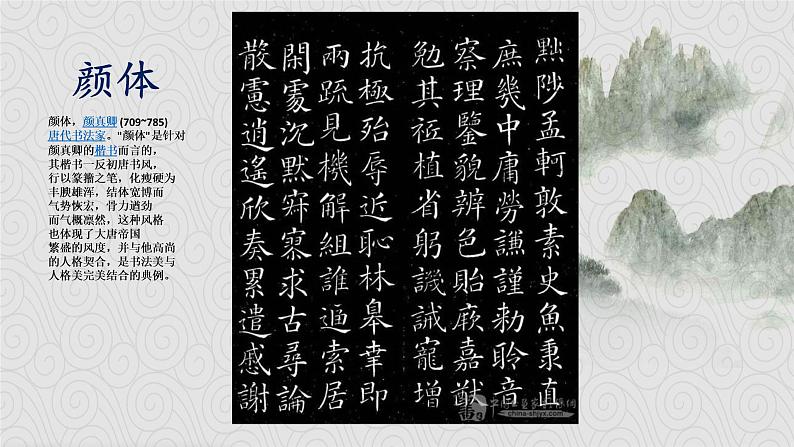 颜体
颜体，颜真卿 (709~785)
唐代书法家。"颜体"是针对
颜真卿的楷书而言的，
其楷书一反初唐书风，
行以篆籀之笔，化瘦硬为
丰腴雄浑，结体宽博而
气势恢宏，骨力遒劲
而气概凛然，这种风格
也体现了大唐帝国
繁盛的风度，并与他高尚
的人格契合，是书法美与
人格美完美结合的典例。
黜陟孟軻敦素史魚秉直
庶幾中庸勞謙謹勑聆音
察理鑒貌辨色貽厥嘉猷
勉其祗植省躬譏誡寵增
抗極殆辱近恥林皋幸即
兩疏見機解組誰逼索居
閑處沉默寂寥求古尋論
散慮逍遙欣奏累遣慼謝
china-shjyx.com